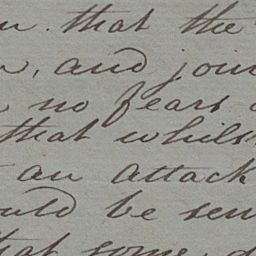 that the
, and join
no fears
that whilst
an attack
ould be sen
that some